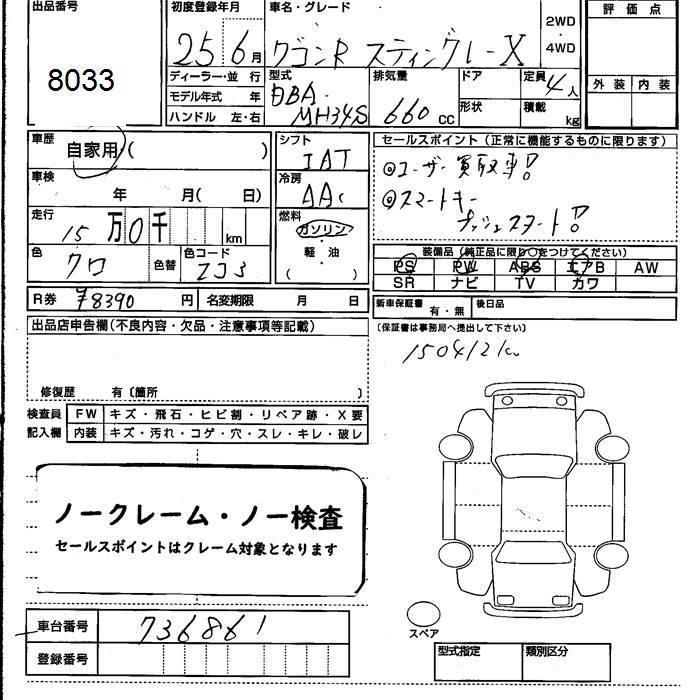 出品番号
初度登録年月
車名・グレード
評価点
8033
25 6月
ワゴンR スティングレーX
2WD・4WD
ディーラー・並行
型式
排気量
ドア
定員
モデル年式 年
DBA-MH34S
660cc
4人
外装 内装
ハンドル 左・右
形状
積載
kg
車歴
自家用(        )
シフト
IAT
セールスポイント(正常に機能するものに限ります)
◎ユーザー買取車!
車検
年 月( 日)
冷房
AAC
◎スマートキー
プッシュスタート!
走行
15万0千 km
燃料
ガソリン・軽油
(   )
装備品(純正品に限り○をつけてください)
色
クロ
色替
色コード
ZJ3
PS PW ABS エアB AW
SR ナビ TV カワ
R券
¥8390円
名変期限 月 日
新車保証書 有・無
後日品
出品店申告欄(不良内容・欠品・注意事項等記載)
(保証書は事務局へ提出して下さい)
150412km
修復歴 有〔箇所          〕
検査員 FW キズ・飛石・ヒビ割・リペア跡・X要
記入欄 内装 キズ・汚れ・コゲ・穴・スレ・キレ・破レ
ノークレーム・ノー検査
セールスポイントはクレーム対象となります
車台番号
736861
スペア
登録番号
型式指定
類別区分